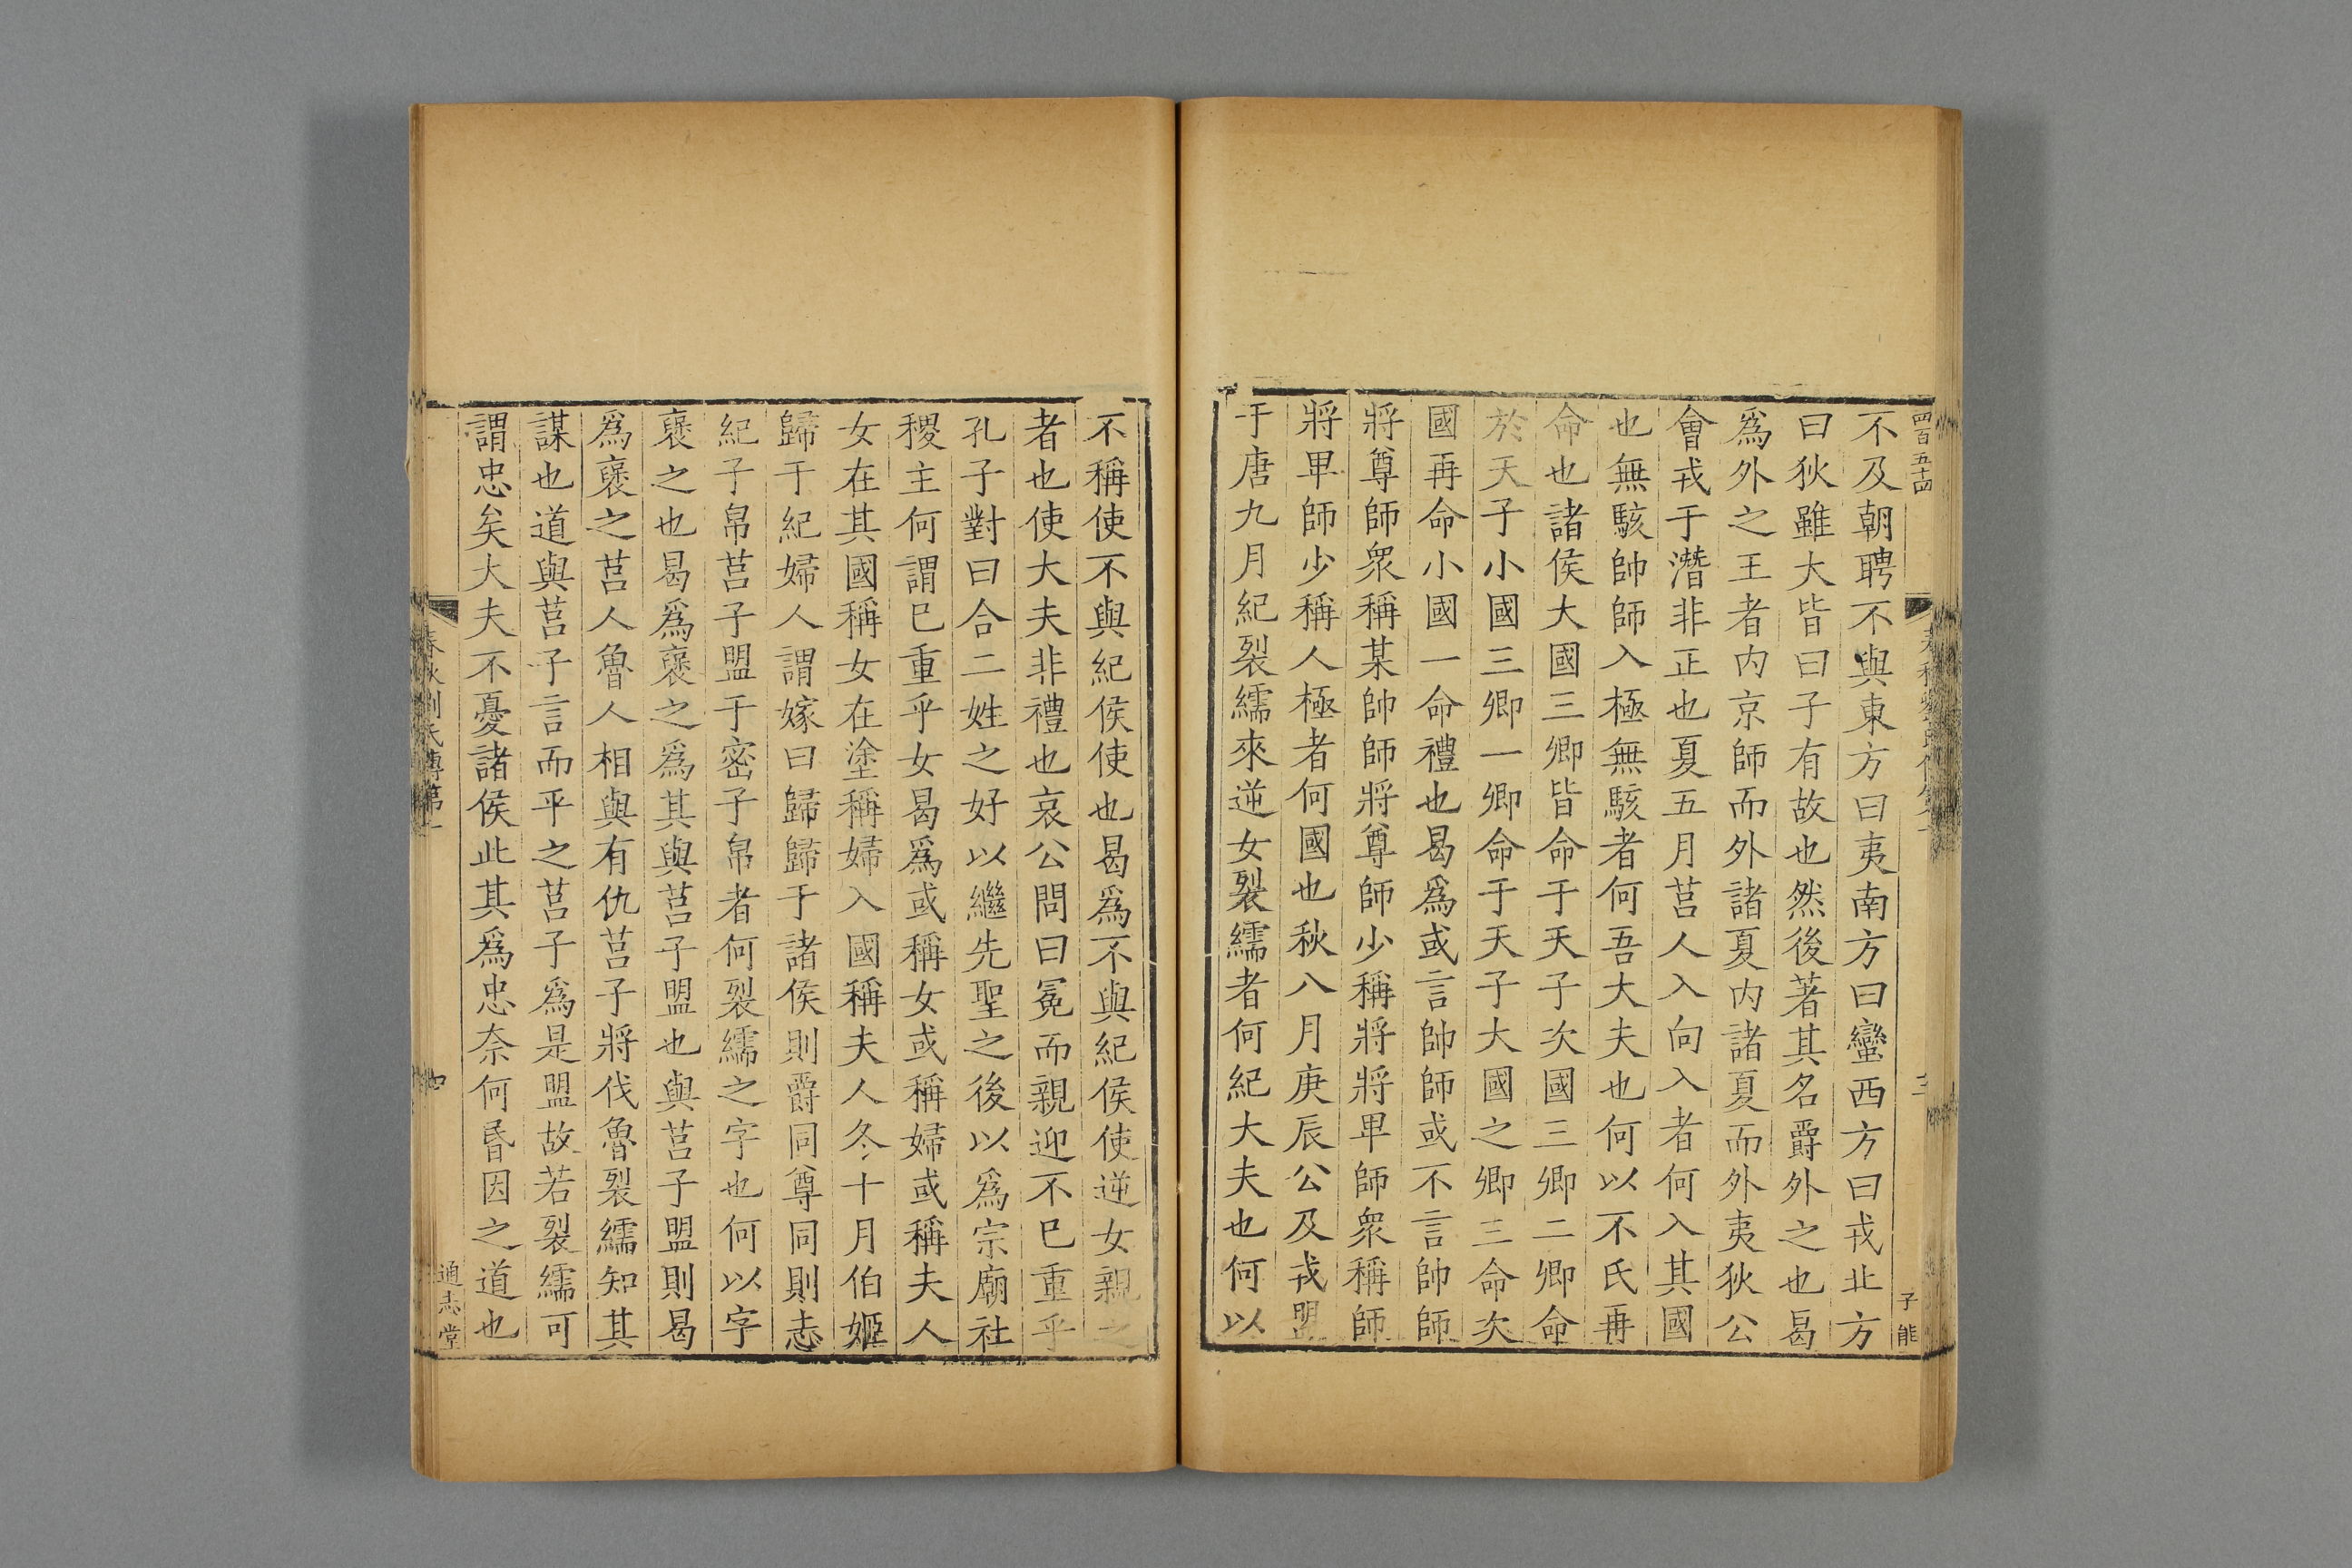 四百五十四
不及朝聘不與東方曰夷南方曰蠻西方曰戎北方
曰狄雖大皆曰子有故也然後著其名爵外之也曷
爲外之王者内京師而外諸夏内諸夏而外夷狄公
會戎于潛非正也夏五月莒人入向入者何入其國
也無駭帥師入極無駭者何吾大夫也何以不氏再
命也諸侯大國三卿皆命于天子次國三卿二卿命
於天子小國三卿一卿命于天子大國之卿三命次
國再命小國一命禮也曷爲或言帥師或不言帥師
將尊師衆稱某帥師將尊師少稱將將卑師衆稱師
將卑師少稱人極者何國也秋八月庚辰公及戎盟
于唐九月紀裂繻來逆女裂繻者何紀大夫也何以
子能
不稱使不與紀侯使也曷爲不與紀侯使逆女親之
者也使大夫非禮也哀公問曰冕而親迎不巳重乎
孔子對曰合二姓之好以繼先聖之後以爲宗廟社
稷主何謂巳重乎女曷爲或稱女或稱婦或稱夫人
女在其國稱女在塗稱婦入國稱夫人冬十月伯姬
歸于紀婦人謂嫁曰歸歸于諸侯則爵同尊同則志
紀子帛莒子盟于密子帛者何裂繻之字也何以字
襃之也曷爲襃之爲其與莒子盟也與莒子盟則曷
爲襃之莒人魯人相與有仇莒子將伐魯裂繻知其
謀也道與莒子言而平之莒子爲是盟故若裂繻可
謂忠矣大夫不憂諸侯此其爲忠奈何昏因之道也
春秋劉氏傳第一
四
通志堂